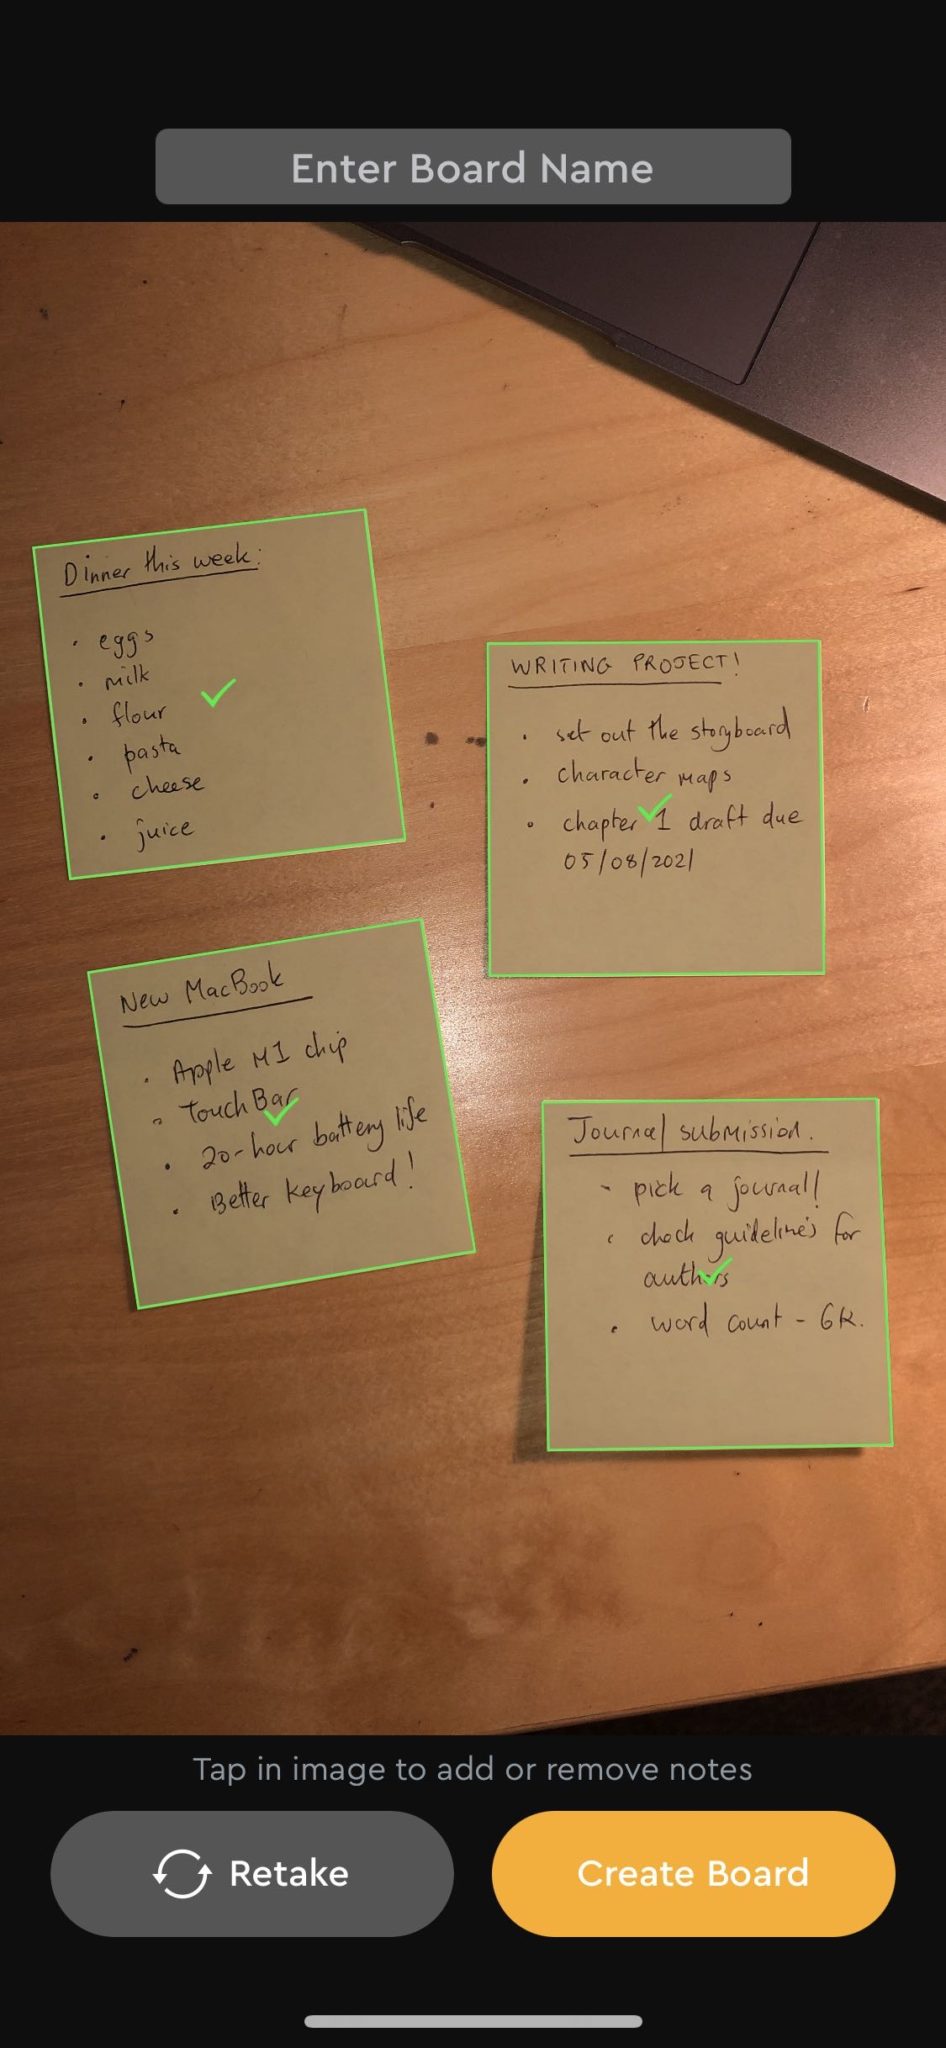 Enter Board Name
Dinner this week:
• eggs
• milk
• flour
• pasta
• cheese
• juice
WRITING PROJECT!
• set out the storyboard
• character maps
• chapter 1 draft due
05/08/2021
New MacBook
• Apple M1 chip
• TouchBar
• 20-hour battery life
• Better keyboard!
Journal submission.
- pick a journal!
• check guidelines for
authors
• word count - 6K.
Tap in image to add or remove notes
Retake
Create Board